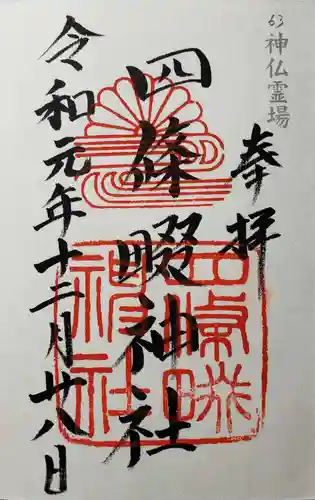 63
神仏霊場
奉拝
四條畷神社
四條畷
神社
令和元年十二月廿八日